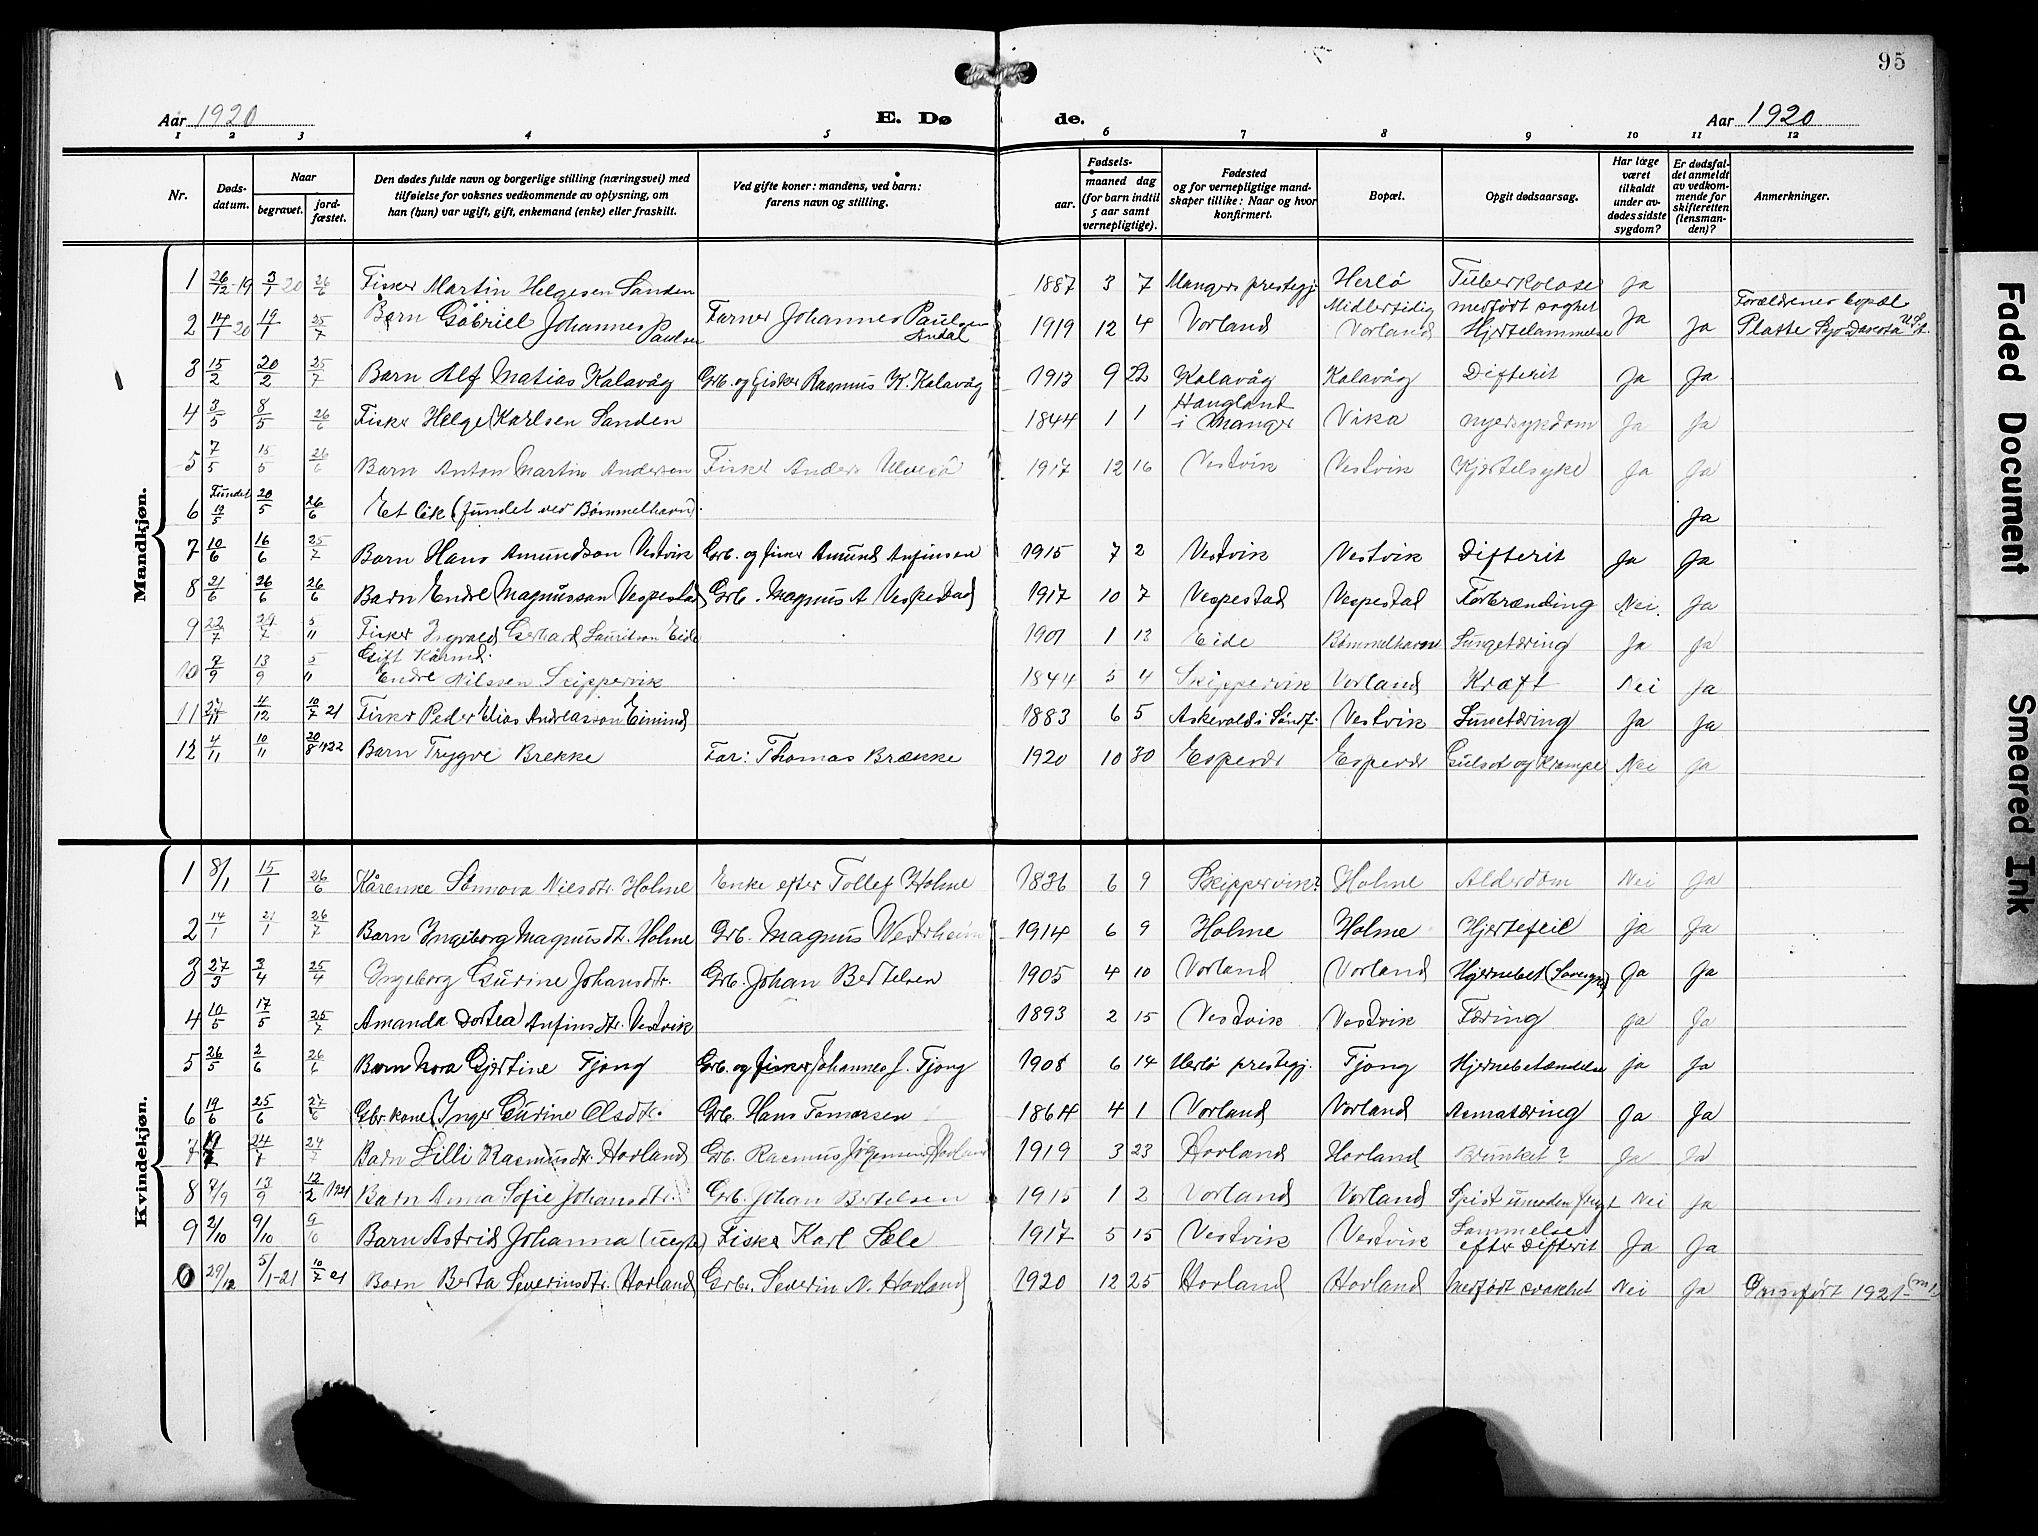 95
Aar 1920 E. Dø de. Aar 1920
1 2 3 4 5 6 7 8 9 10 11 12
Nr. Døds-datum. Naar begravet. jord-fæstet. Den dødes fulde navn og borgerlige stilling (næringsvei) med tilføielse for voksnes vedkommende av oplysning, om han (hun) var ugift, gift, enkemand (enke) eller fraskilt. Ved gifte koner: mandens, ved barn: farens navn og stilling. Fødsels- aar. maaned dag (for barn indtil 5 aar samt vernepligtige). Fødested og for vernepligtige mandskaper tillike: Naar og hvor konfirmert. Bopæl. Opgit dødsaarsag. Har læge været tilkaldt under avdødes sidste sygdom? Er dødsfaldet anmeldt av vedkommende for skifteretten (lensmanden)? Anmerkninger.
Mandkjøn.
1 26/12-19 3/1 20 26/6 Fisker Martin Helgesen Sanden 1887 3 7 Mangers prestegj. Herlø Tuberkolose Ja
2 14/1-20 19/1 25/7 Barn Gabriel Johannes Paulsen Farner Johannes Paulsen Andal 1919 12 4 Vorland Midlertidig Vorland medført svaghet Hjertelammelse Ja Ja Forældrenes bopæl Platte Syd Dacota U.St.
3 15/2 20/2 25/7 Barn Alf Matias Kalavåg Grb. og fisker Rasmus K. Kalavåg 1913 9 22 Kalavåg Kalavåg Difterit Ja Ja
4 3/5 8/5 26/6 Fisker Helge Karlsen Sanden 1844 1 1 Haugland i Manger Vika nyresykdom Ja Ja
5 7/5 15/5 26/6 Barn Anton Martin Andersen Fisker Anders Ulvesø 1917 12 16 Vestvik Vestvik Kjertelsyke Ja Ja
6 Fundet 10/5 20/5 26/6 Et lik (fundet ved Bømmelhavn). Ja
7 10/6 16/6 25/7 Barn Hans Amundson Vestvik Grb. og fisker Amund Anfinsen 1915 7 2 Vestvik Vestvik Difterit Ja Ja
8 21/6 26/6 26/6 Barn Endre Magnusson Vespestad Grb. Magnus A Vespestad 1917 10 7 Vespestad Vespestad Forbrænding Nei. Ja
9 22/7 29/7 5/11 Fisker Ingvald Gerhard Lauritson Eide 1901 1 13 Eide Bømmelhavn Lungetæring Ja Ja
10 7/9 13/9 5/11 Gift Kårmd. Endre Nilssen Skippervik 1844 5 4 Skippervik Vorland Kræft Nei Ja
11 27/11 4/12 10/7 21 Fisker Peder Elias Andreasson Eimind 1883 6 5 Askevold i Søndf. Vestvik Lunetæring Ja Ja
12 4/11 10/11 20/8 1922 Barn Trygve Brekke Far: Thomas Brække 1920 10 30 Espevær Espevær Gulsot og Krampe Nei Ja
Kvindekjøn.
1 8/1 15/1 26/6 Kårenke Sønnova Nilsdtr. Holme Enke efter Tollef Holme 1836 6 9 Skippervik? Holme Alderdom Nei Ja
2 14/1 21/1 26/7 Barn Ingeborg Magnusdtr. Holme Grb. Magnus Wederheim 1914 6 9 Holme Holme Hjertefeil Ja Ja
3 27/3 3/4 25/4 Ingeborg Gurine Johansdtr. Grb. Johan Bertelsen 1905 4 10 Vorland Vorland Ja Ja
4 10/5 17/5 25/7 Amanda Dortea Anfinsdtr. Vestvik 1893 2 15 Vestvik Vestvik Tæring Ja Ja
5 26/5 2/6 26/6 Barn Nora Gjertine Fjong Grb. og fisker Johannes J. Fjong 1908 6 14 Herlø prestegj. Fjong Hjernebetændelse Ja Ja
6 19/6 25/6 27/6 Gbr. kone Inger Gurine Olsdtr. Grb. Hans Tomassen 1864 4 1 Vorland Vorland Asmatæring Ja Ja
7 24/7 Barn Lilli Rasmusdtr. Hovland Grb. Rasmus Jørgensen Hovland 1919 3 23 Hovland Hovland Brunket? Ja Ja
8 7/9 13/9 12/2 1921 Barn Anna Sofie Johansdtr. Grb. Johan Bertelsen 1915 1 2 Vorland Vorland Spist umoden frugt Nei Ja
9 2/10 9/10 9/10 Barn Astrid Johanna (uegte) Fisker Karl Sæle 1917 5 15 Vestvik Vestvik Lammelse efter Difterit Ja Ja
10 29/12 5/1-21 10/7 21 Barn Berta Severinsdtr. Hovland Grbr. Severin N. Hovland 1920 12 25 Hovland Hovland medført svakhet Nei Ja Omført 1921
Faded Document
Smeared Ink